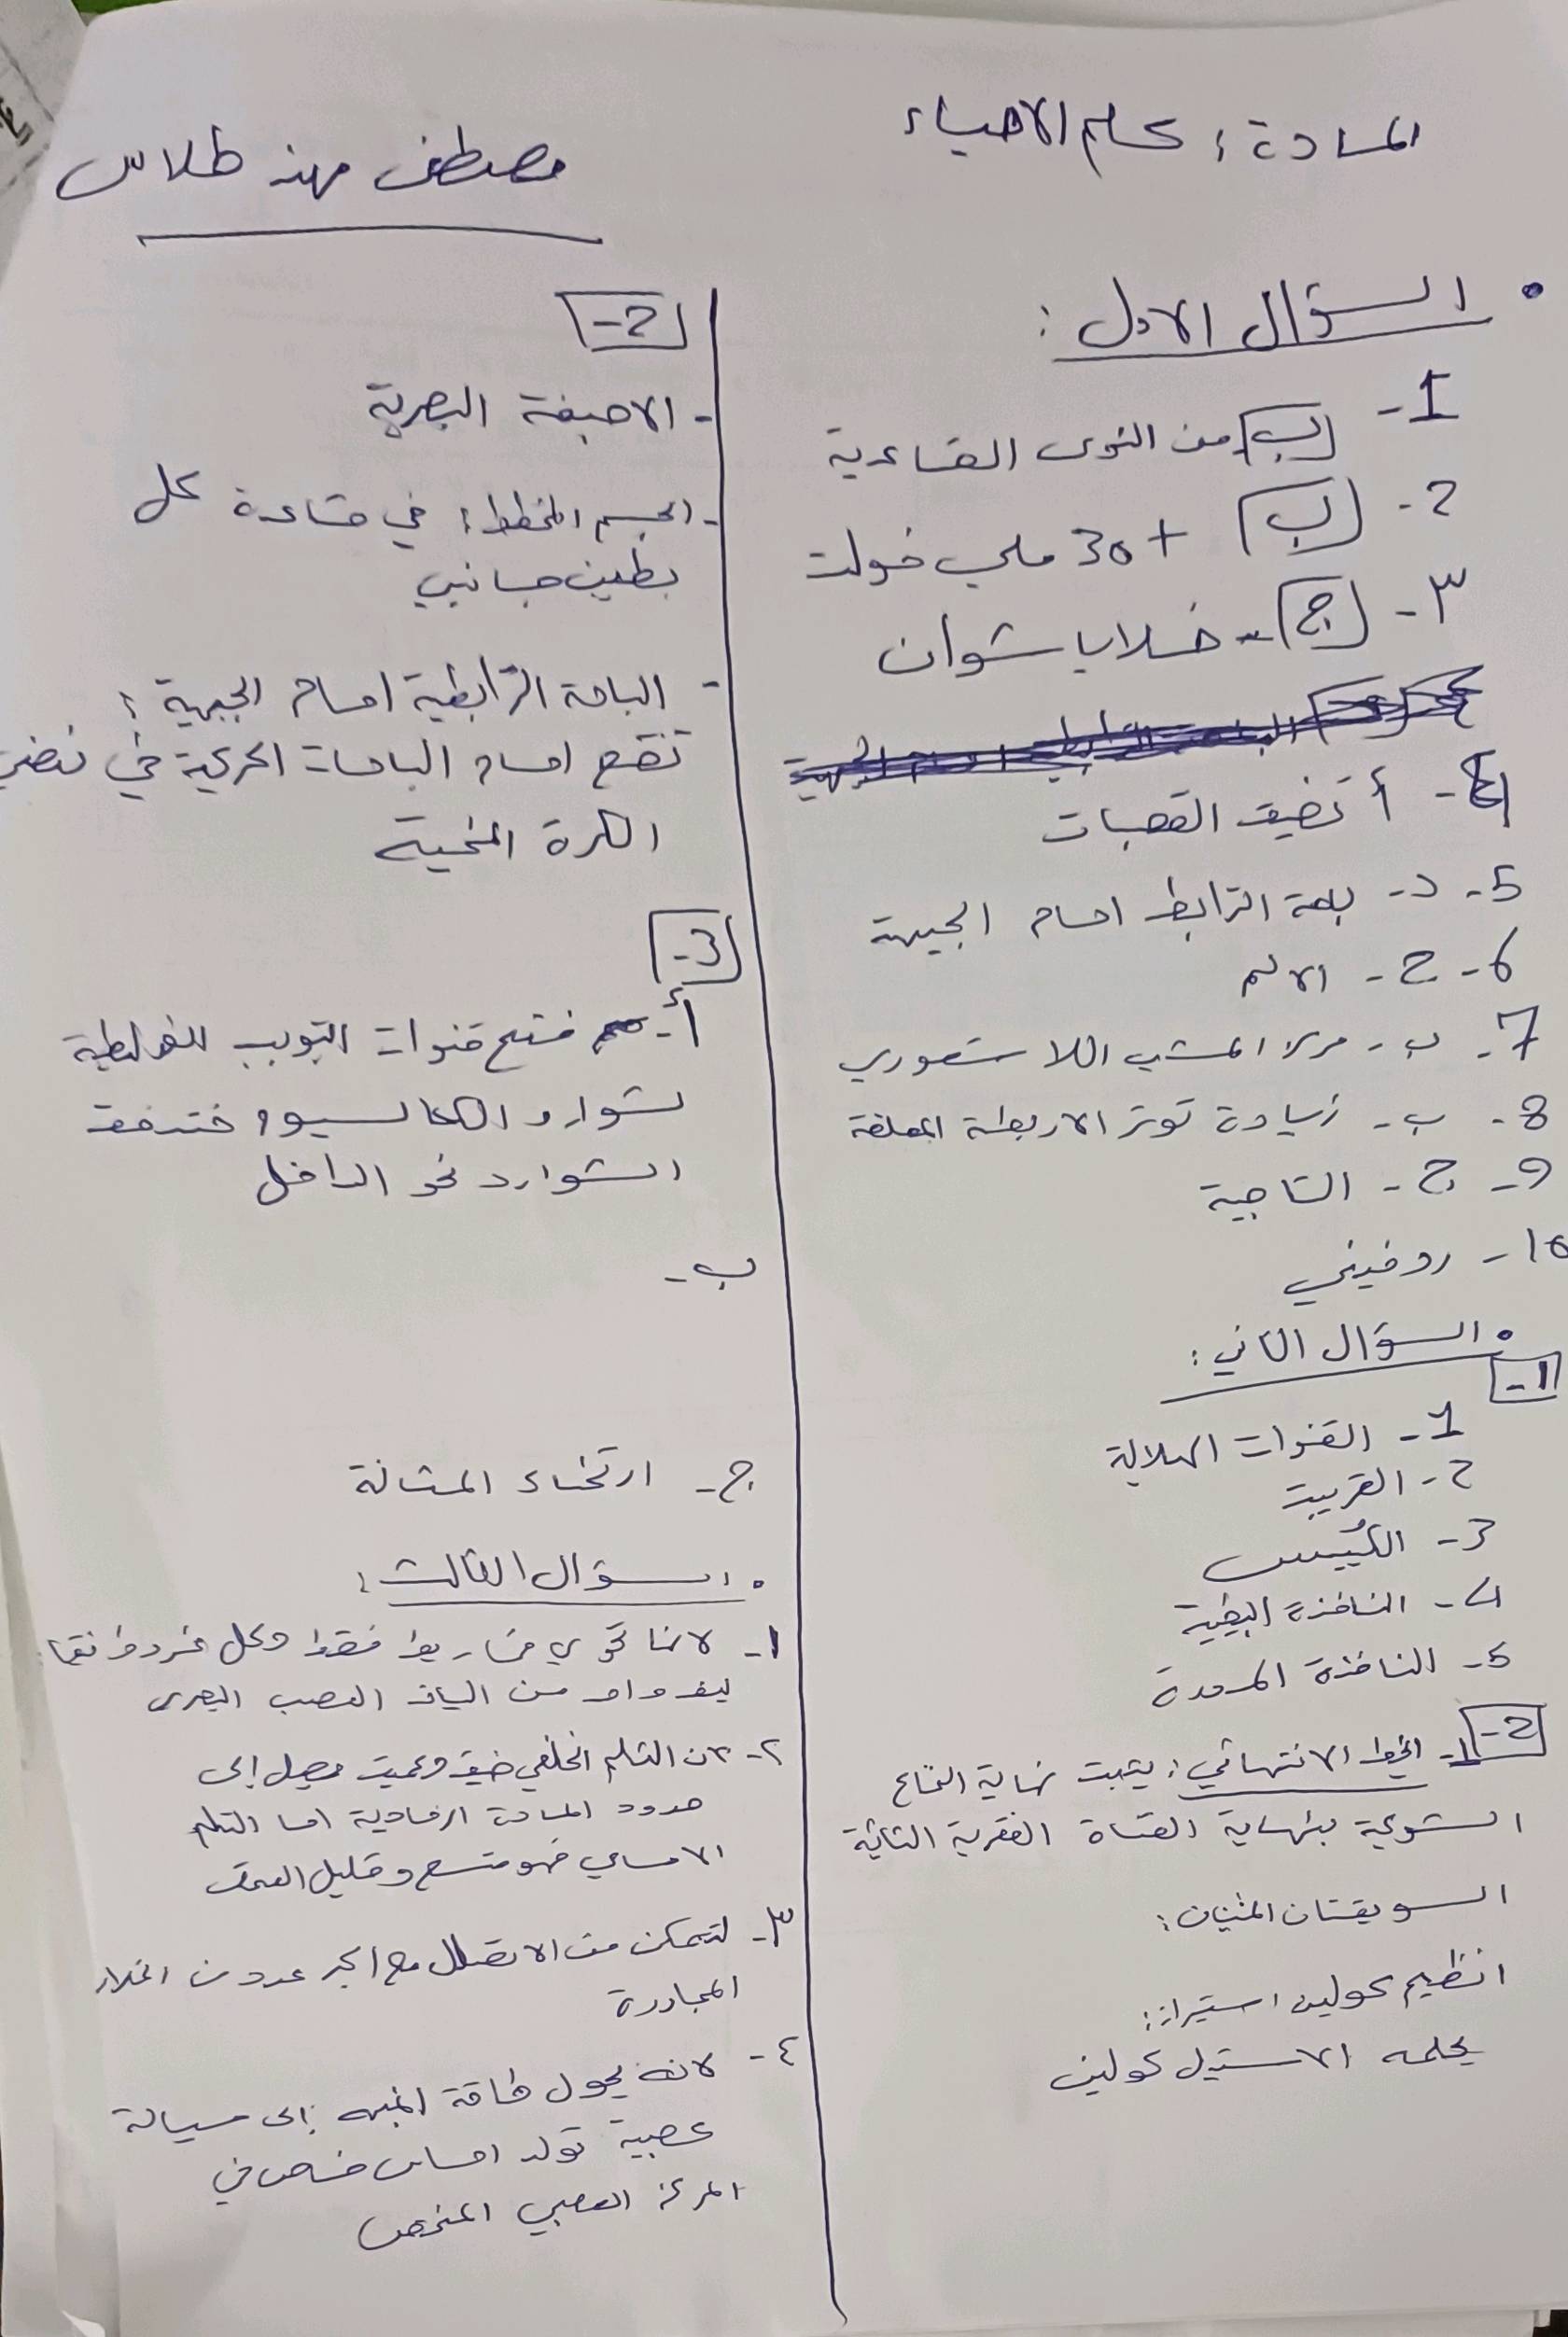 المادة: علم الاحياء
مصطفى مهند طلاس
السؤال الاول:
1- ب من النوى القاعدية
2- ب +30 ملي فولت
٣- ج - خلايا شوان
4- أ تضيق القصبات
5- د- باحة الترابط امام الجبهية
6- ح- الالم
7- ب- مركز المشي اللاشعوري
8- ب- زيادة توتر الاربطة المعلقة
9- ج- التاجية
10- روفيني
السؤال الثاني:
1-
1- القنوات الهلالية
2- القريبة
3- الكييس
4- النافذة البيضية
5- النافذة المدورة
2-
1- الخيط الانتهائي: يثبت نهاية النخاع
الشوكي بنهاية القناة الفقرية
السويقتان المخيتان:
انظيم كولين استيراز:
يحلمه الاستيل كولين
2-
- الاصبغة البصرية
- الجسم المخطط: في قاعدة كل
بطين جانبي
- الباحة الترابطية امام الجبهية:
تقع امام الباحات الحركية في نصفي
الكرة المخية
3-
أ- فتح قنوات التبويب الفولطية
لشوارد الكالسيوم فتدفق
الشوارد نحو الداخل
ب-
ج- ارتخاء المثانة
السؤال الثالث:
1- لانها تحوي مخاريط فقط وكل مخروط
ليف واحد من الياف العصب البصري
٢- لان الثلم الخلفي ضيق وعميق ويصل إلى
حدود المادة الرمادية اما الثلم
الامامي فهو متسع وقليل العمق
٣- لتتمكن من الاتصال مع اكبر عدد من الخلايا
المجاورة
٤- لانه يحول طاقة المنبه إلى سيالة
عصبية تولد احساس خاص في
المركز العصبي المختص